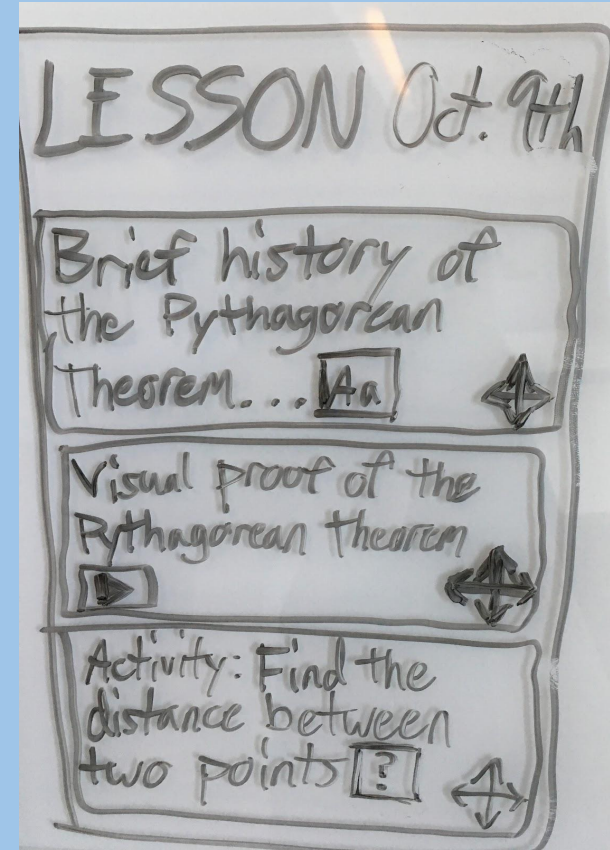 LESSON Oct. 9th
Brief history of
the Pythagorean
Theorem... Aa
Visual proof of the
Pythagorean theorem
Activity: Find the
distance between
two points ?